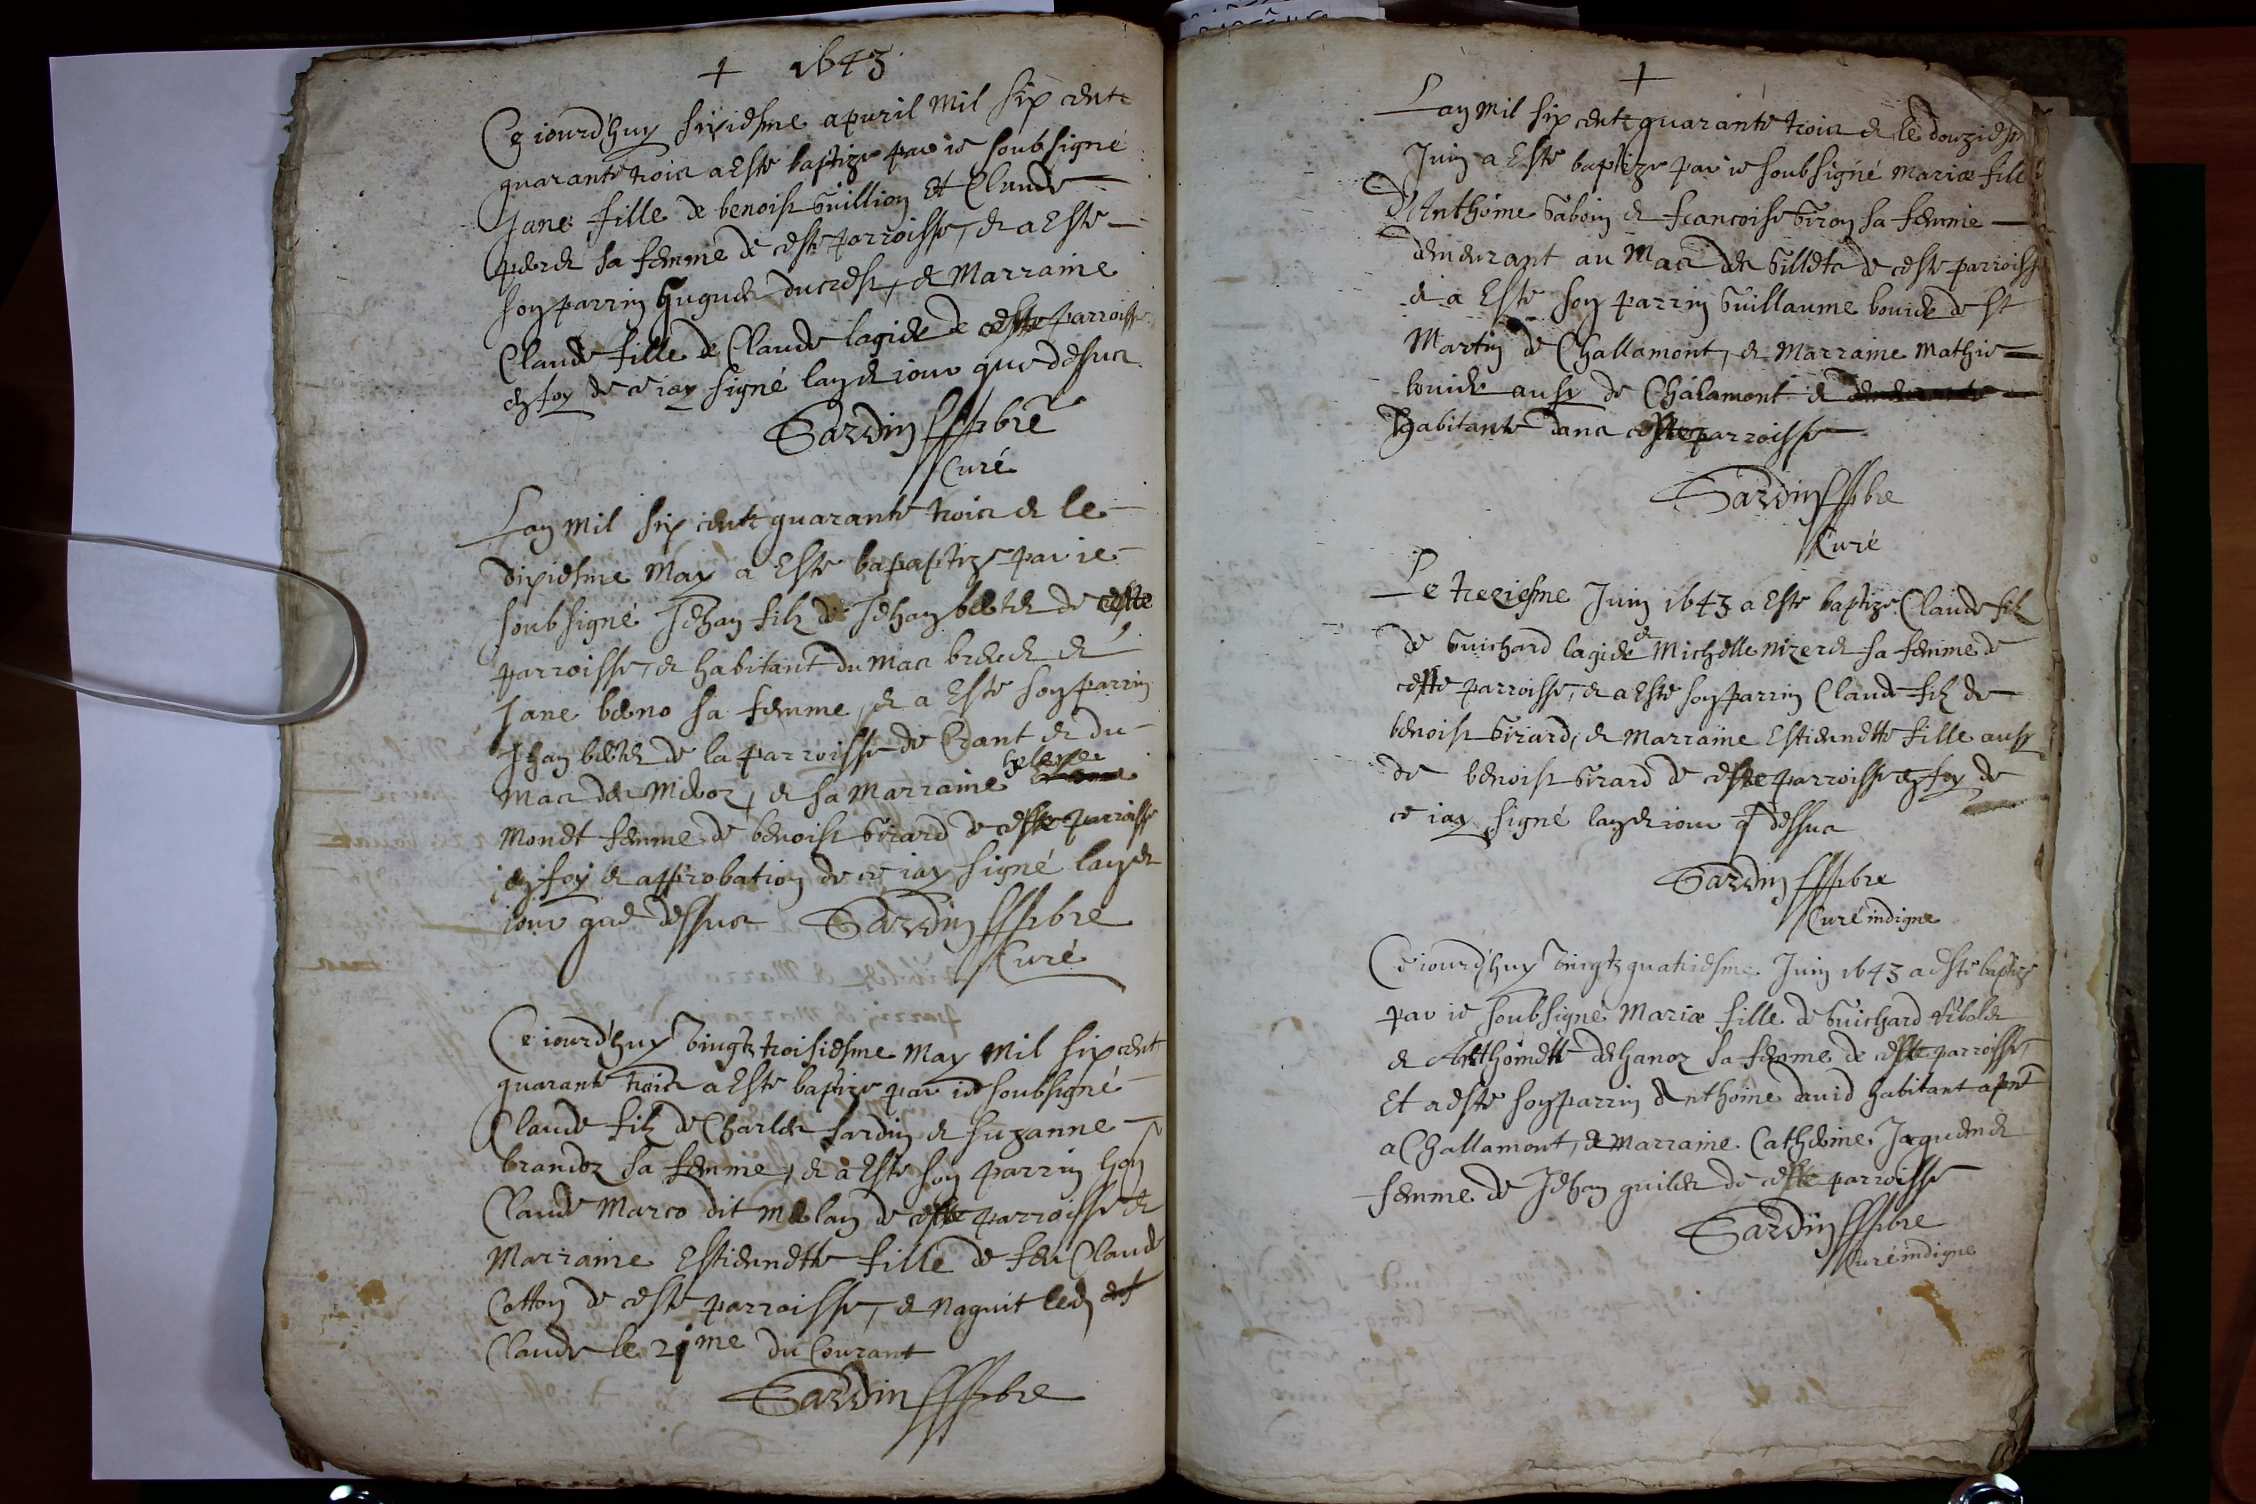 + 1643
Ce iourdhuy sixiesme apvril mil six centz
quarante trois a este baptize par ie soubsigné
Jane fille de benoist Guillion Et Claude
sa femme de ceste parroisse, et a este
son parrin hugues ducrest, et Marraine
Claude fille de Claude lagier de ceste parroisse
en foy de ce iay signé lan et iour que desus
Sardin pbre
Curé
Lan mil six centz quarante trois et le
dixiesme May a este bapaptize par ie
soubsigné Jehan filz de Jehan de ceste
parroisse, et habitant du mas et
Jane sa femme, et a este son parrin
Jhan de la parroisse de Crant et du
mas des et sa Marraine helene
Monet femme de benoist Girard de ceste parroisse
en foy et approbation de ce iay signé lan et
iour que dessus Sardin pbre
Curé
Ce iourdhuy vingtz troisiesme May mil six cent
quarante trois a este baptize par ie soubsigné
Claude filz de Charles Sardin et suzanne
brandoz sa femme, et a este son parrin hon
Claude Marco dit de ceste parroisse et
Marraine Estiennette fille de feu Claude
Cotton de ceste parroisse, et naquit led
Claude le 21me du Courant
Sardin pbre
+
Lan mil six centz quarante trois et le douzies
Juin a Este baptize par ie soubsigné Marie fille
D'Anthoine Gaboin et francoise Giron sa femme
demeurant au Mas des Gilletz de ceste parroisse
et a Este son parrin Guillaume bouier de st
Martin de Challamont, et Marraine Mathie
bouier aussy de Chalamont et
habitante dans ceste parroisse
Sardin pbre
Curé
Le treziesme Juin 1643 a Este baptize Claude filz
de Guichard lagier et Michelle nizeret sa femme de
ceste parroisse, et a este son parrin Claude filz de
benoist Girard, et Marraine Estiennette fille aussy
de benoist Girard de ceste parroisse en foy de
ce iay signé lan et iour q dessus
Sardin pbre
Curé indigne
Ce iourdhuy vingtz quatriesme Juin 1643 a este baptize
par ie soubsigné Marie fille de Guichard
et Anthoinette sa femme de ceste parroisse,
Et a este son parrin Anthoine david habitant a pnt
a Challamont, et Marraine Catherine Jaquemet
femme de Jehan de ceste parroisse
Sardin pbre
Curé indigne